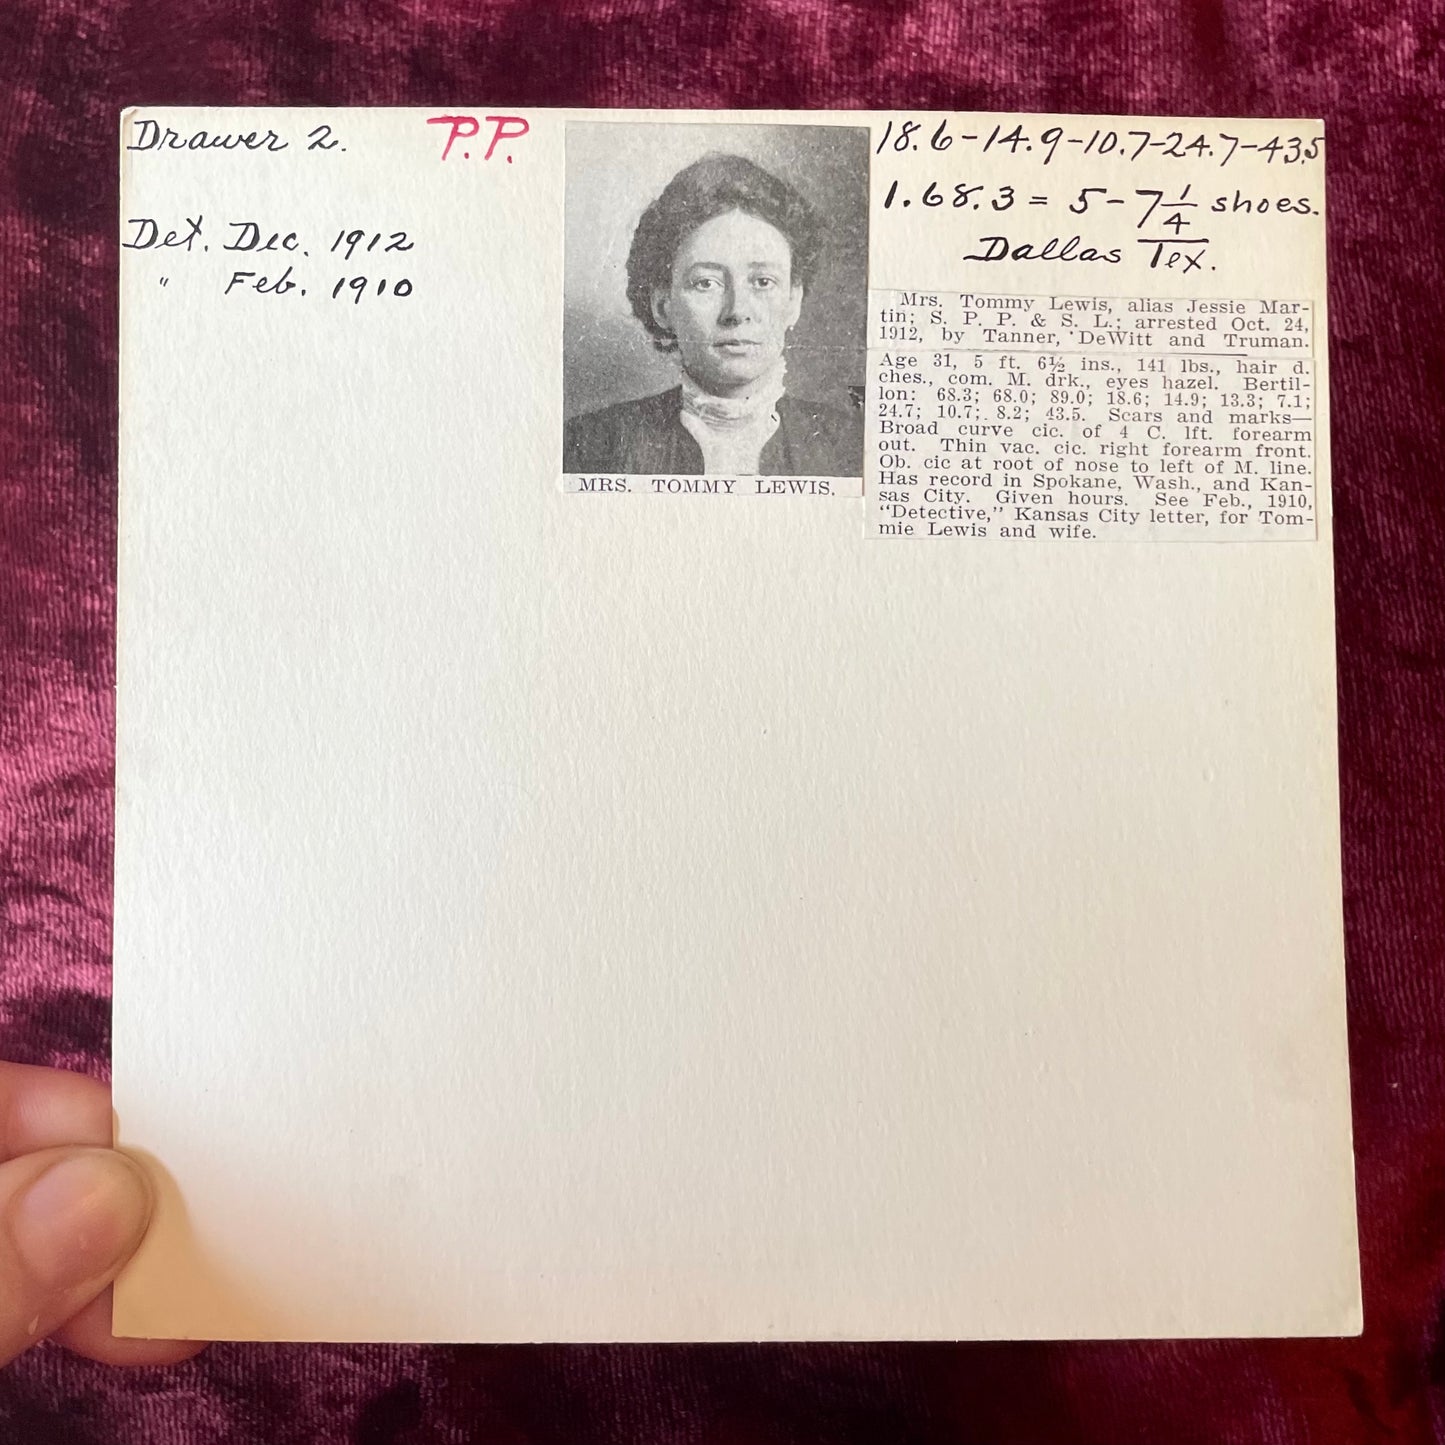 Drawer 2.
P.P.
Det. Dec. 1912
" Feb. 1910
MRS. TOMMY LEWIS.
18.6-14.9-10.7-24.7-43.5
1.68.3 = 5-7 1/4 shoes.
Dallas Tex.
Mrs. Tommy Lewis, alias Jessie Mar-
tin; S. P. P. & S. L.; arrested Oct. 24,
1912, by Tanner, DeWitt and Truman.
Age 31, 5 ft. 6½ ins., 141 lbs., hair d.
ches., com. M. drk., eyes hazel. Bertil-
lon: 68.3; 68.0; 89.0; 18.6; 14.9; 13.3; 7.1;
24.7; 10.7; 8.2; 43.5. Scars and marks—
Broad curve cic. of 4 C. lft. forearm
out. Thin vac. cic. right forearm front.
Ob. cic at root of nose to left of M. line.
Has record in Spokane, Wash., and Kan-
sas City. Given hours. See Feb., 1910,
"Detective," Kansas City letter, for Tom-
mie Lewis and wife.